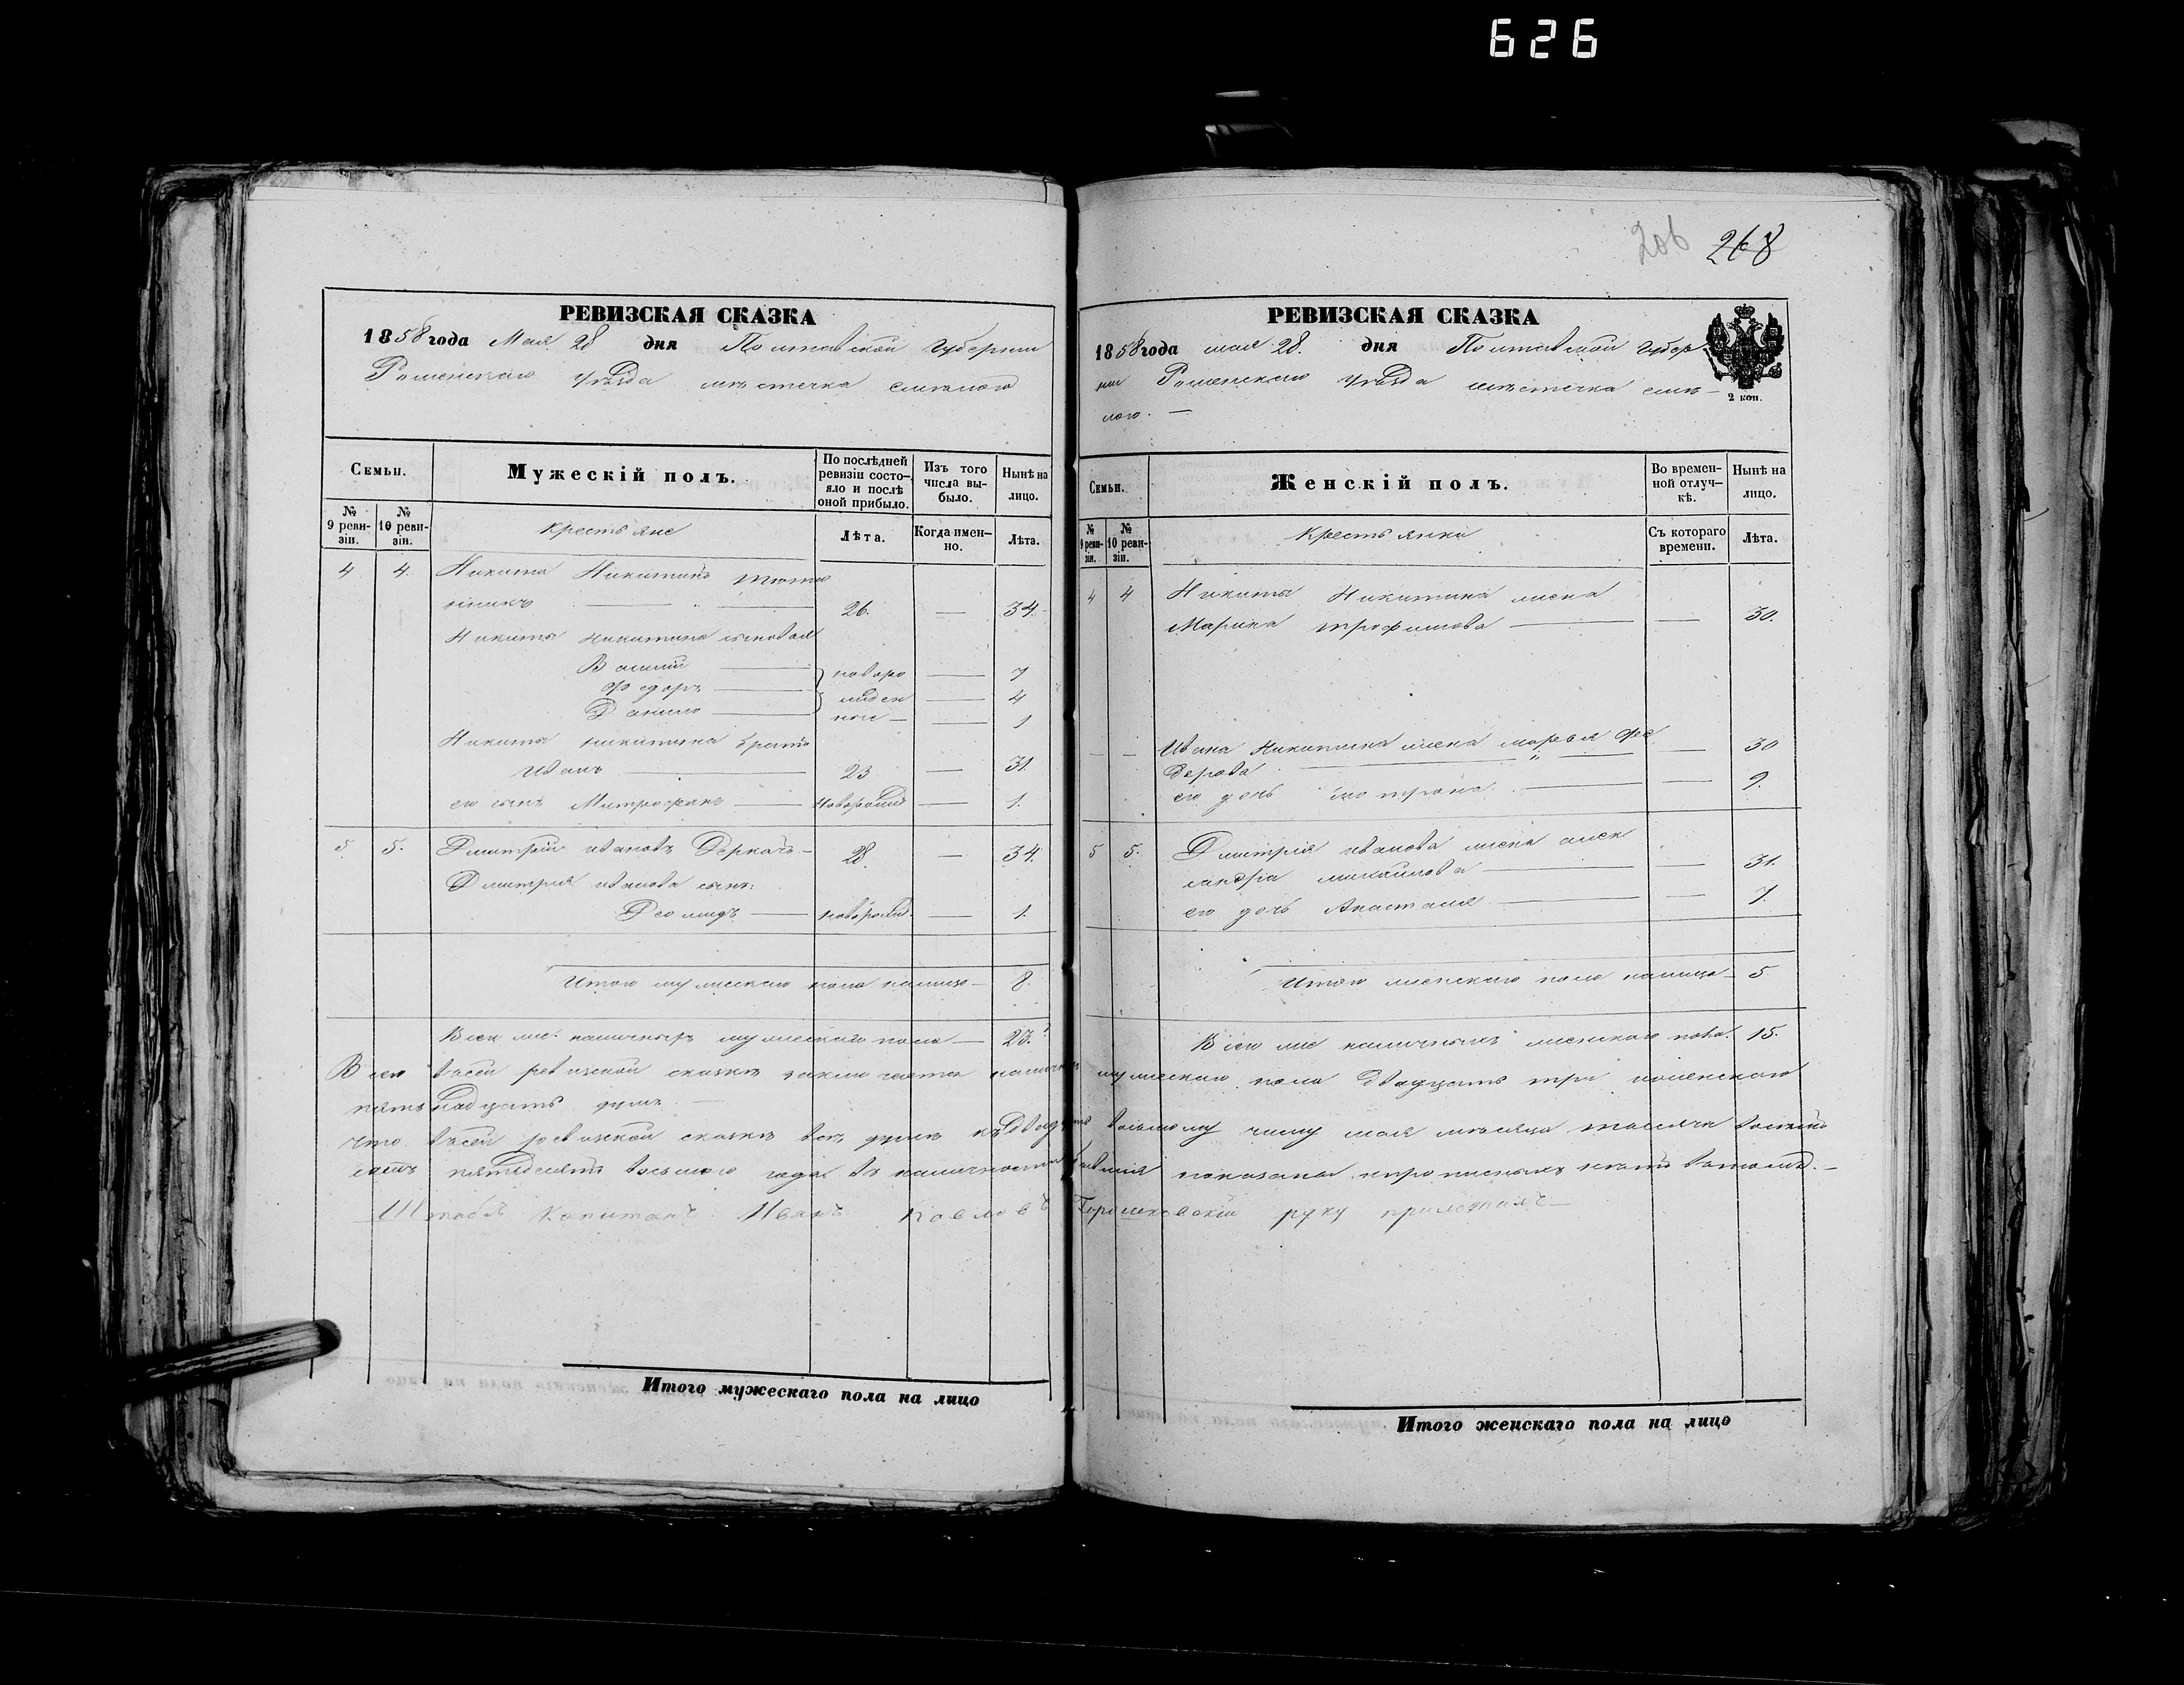 626
206 268
РЕВИЗСКАЯ СКАЗКА
1858 года Мая 28 дня Полтавской Губернии
Роменскаго Уѣзда мѣстечка Смѣлаго
Семьи.
Мужескій полъ.
По послѣдней ревизіи состо-яло и послѣ оной прибыло.
Изъ того числа вы-было.
Нынѣ на лицо.
№ 9 реви-зіи.
№ 10 реви-зіи.
Крестьяне
Лѣта.
Когда имен-но.
Лѣта.
4 4. Никита Никитинъ Тютю
нникъ — 26. — 34.
Никиты Никитина сыновья
Василій — новоро — 7
Федоръ — жден — 4
Данило — ные — 1
Никиты Никитина братъ
Иванъ — 23 — 31.
его сынъ Митрофанъ — новорожд — 1.
5 5. Дмитрій Ивановъ Деркачъ — 28. — 34.
Дмитрія Иванова сынъ:
Деомидъ — новорожд. — 1.
Итого мужескаго пола налицо — 8.
Всех же наличныхъ мужескаго пола — 23.
РЕВИЗСКАЯ СКАЗКА
1858 года мая 28. дня Полтавской Губер
нии Роменскаго Уѣзда мѣстечка Смѣ-
лого. —
2 коп.
Семьи.
Женскій полъ.
Во времен-ной отлуч-кѣ.
Нынѣ на лицо.
№ 9 реви-зіи.
№ 10 реви-зіи.
Крестьянки
Съ котораго времени.
Лѣта.
4 4 Никиты Никитина жена
Марина Трофимова — — 30.
— — Ивана Никитина жена Марья Фе
дорова — — 30
его дочь — 9.
5 5. Дмитрія Иванова жена Алек
сандра Михайлова — — 31.
его дочь Анастасия — — 7.
Итого женскаго пола налицо — 5
Всего же наличныхъ женскаго пола. 15.
Всего въсей ревизской сказкѣ заключается наличныхъ мужескаго пола двадцать три и женскаго
пятьнадцать душъ —
что въсей ревизской сказкѣ всѣ души къ двадцать восьмому числу мая мѣсяца тысяча восемь
сотъ пятьдесятъ восьмого года въ наличности бывшія показаны и прописныхъ нѣтъ въ томъ. —
Штабсъ Капитанъ Иванъ Павловъ руку приложилъ —
Итого мужескаго пола на лицо
Итого женскаго пола на лицо